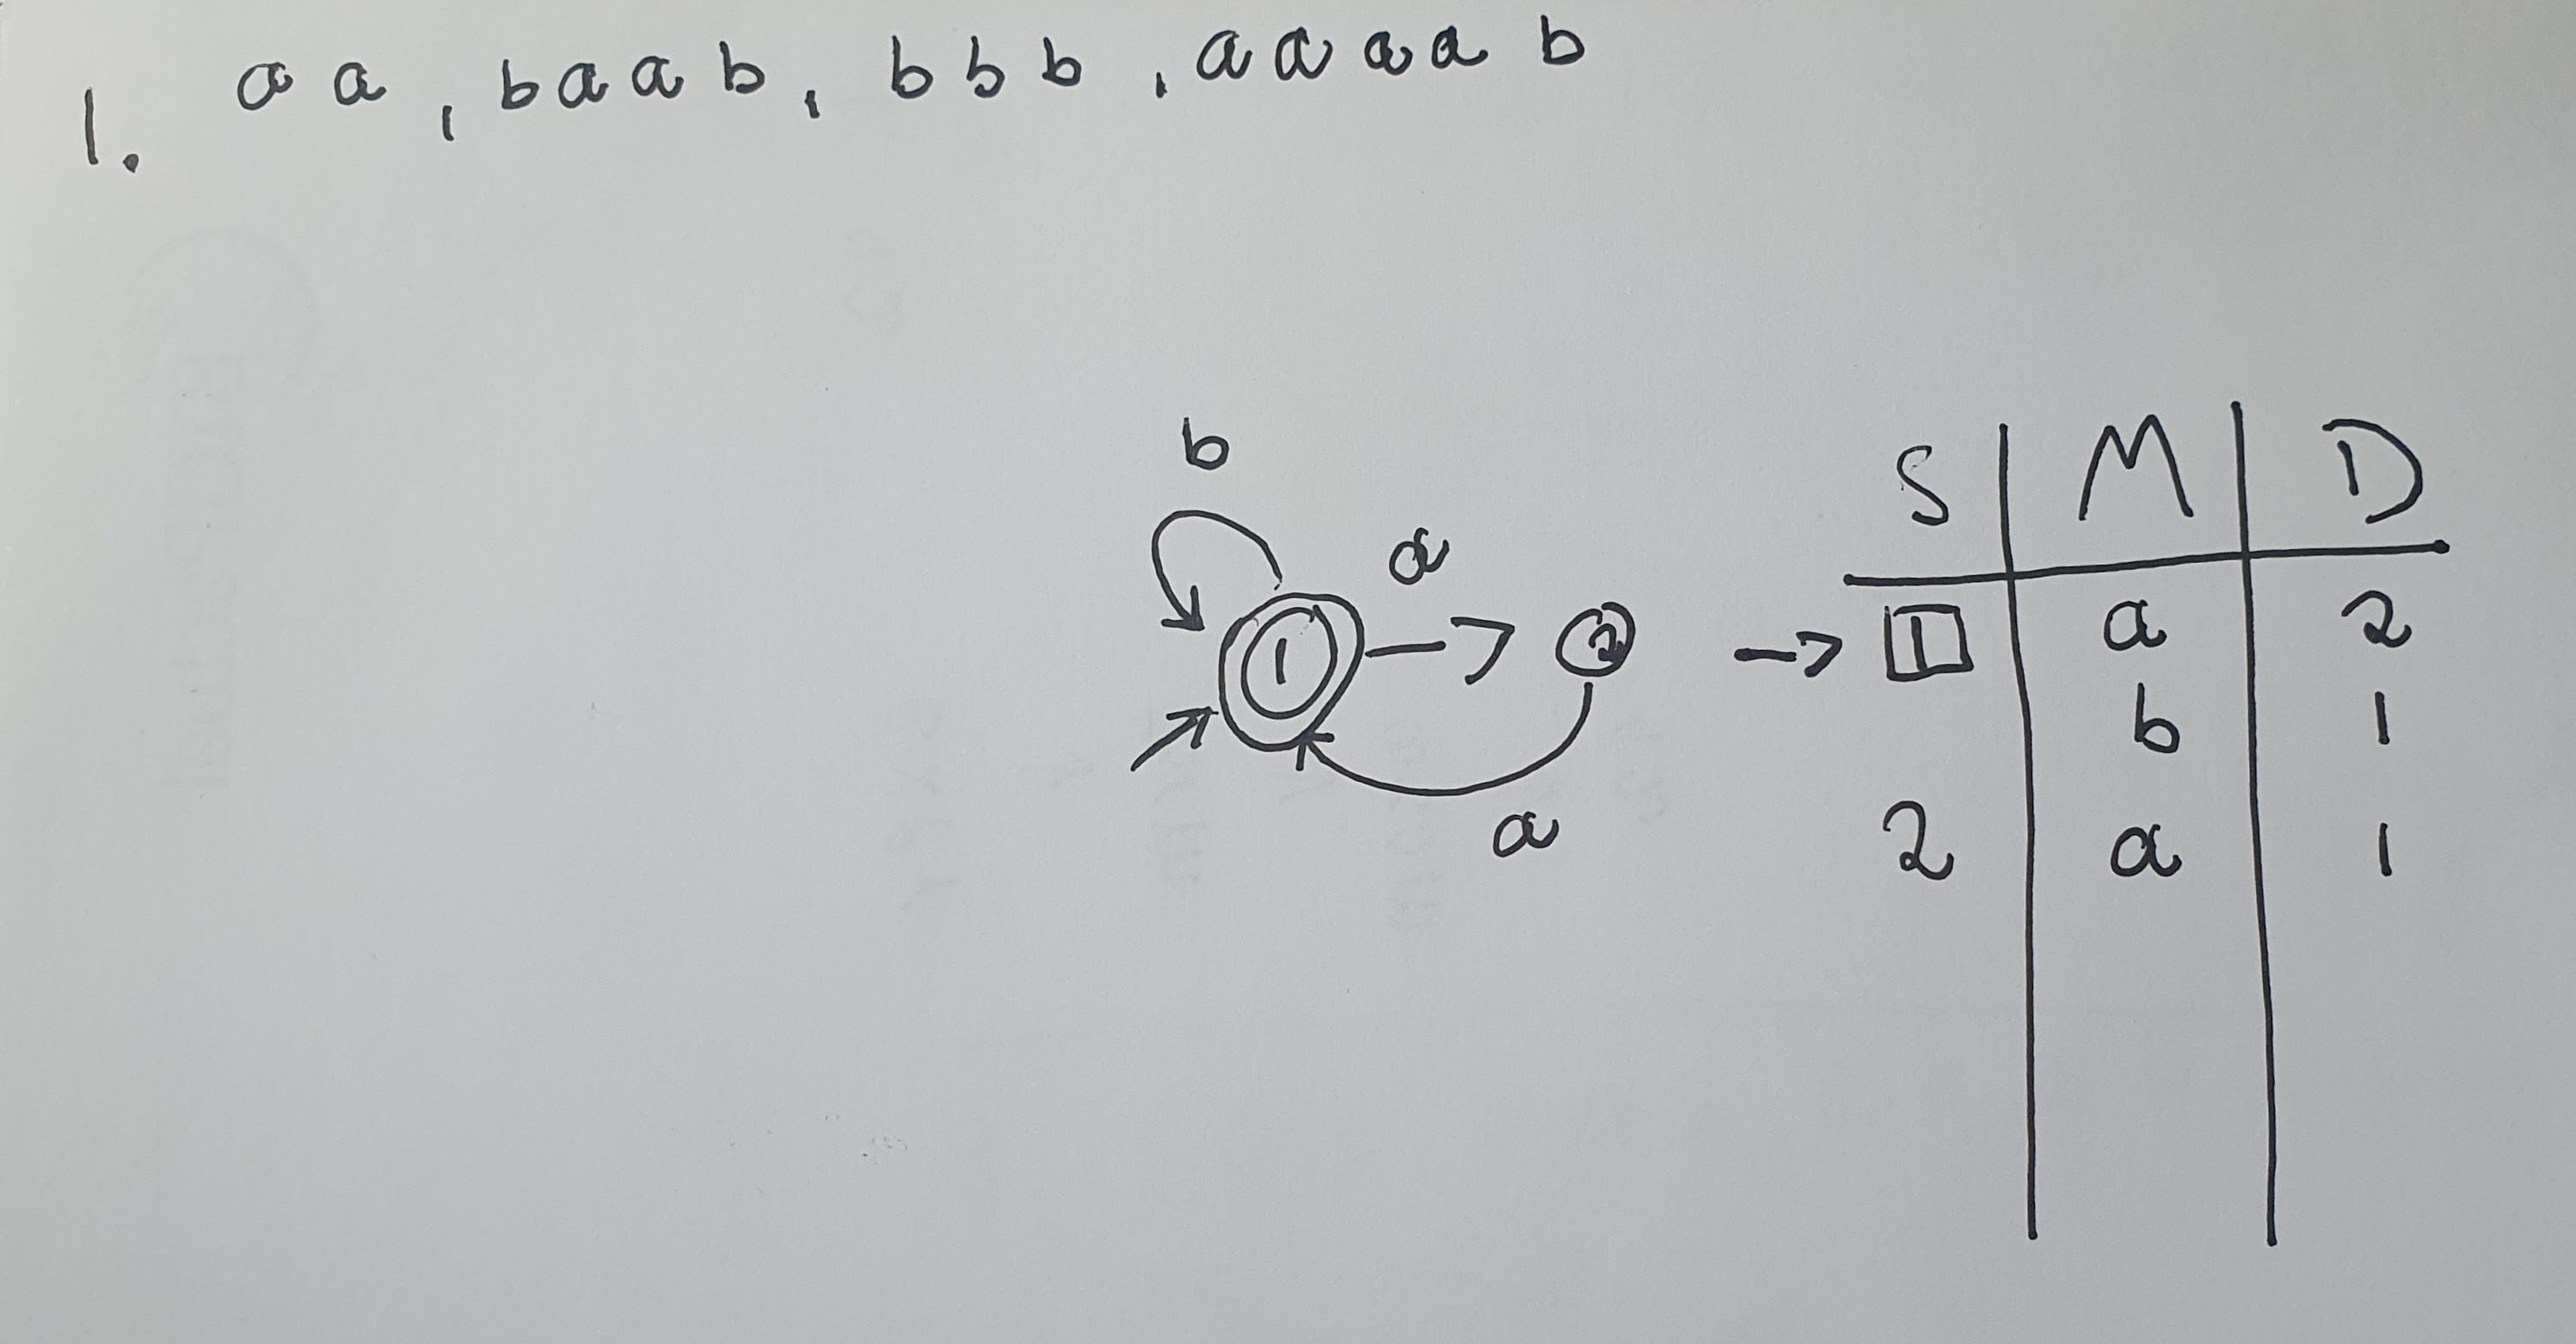 1. a a , b a a b , b b b , a a a a b
b
a
1 -> 2
a
S M D
-> 1 a 2
b 1
2 a 1